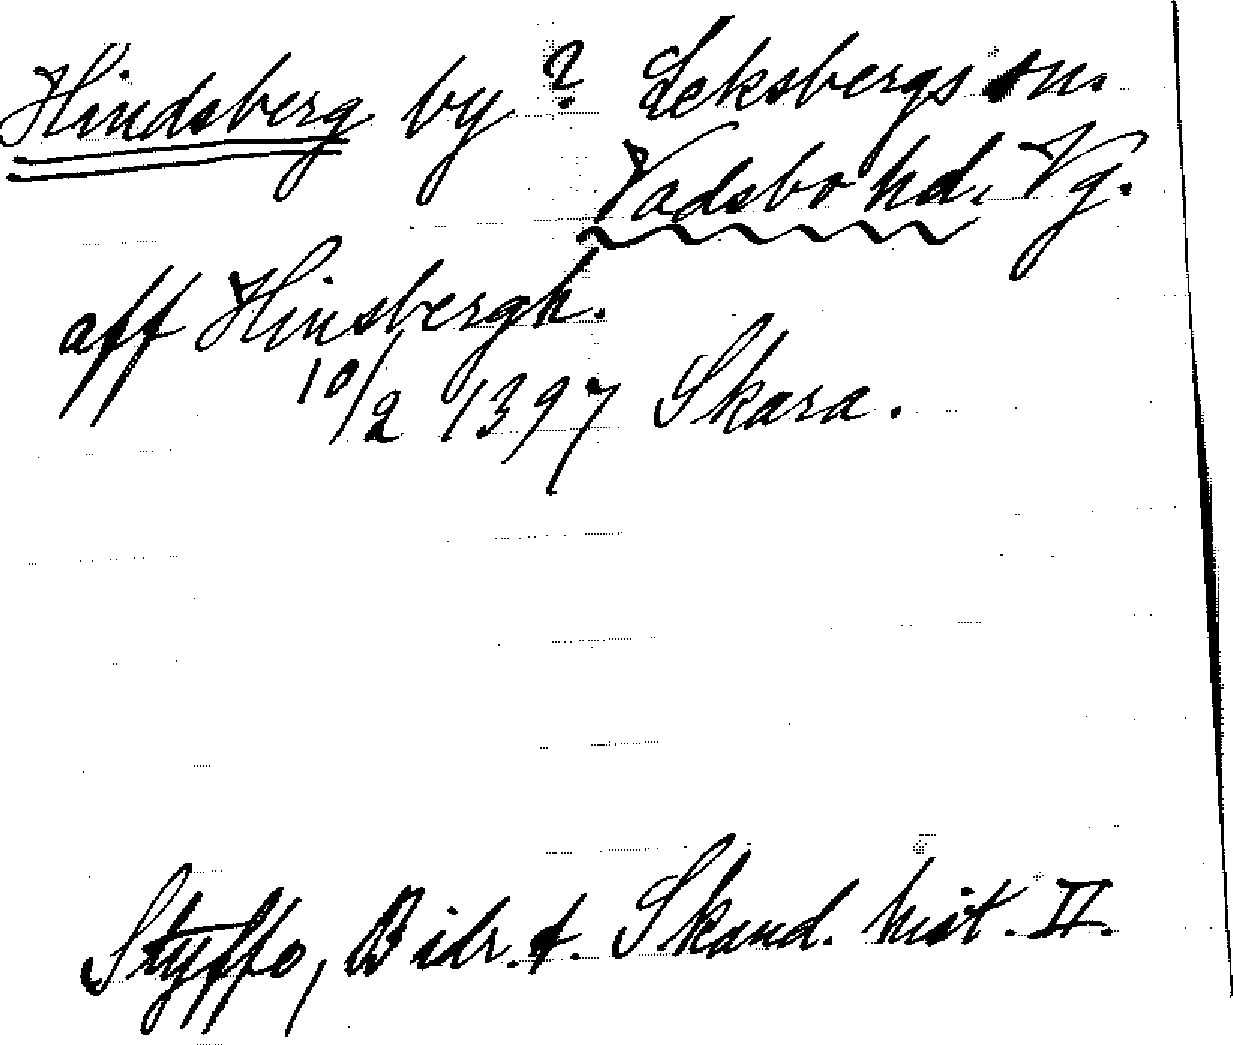 Hindsberg by ? Leksbergs sn.
Vadsbo hd. Vg.
aff Hinsbergh.
10/2 1397 Skara.
Styffe, Bidr. t. Skand. hist. II.